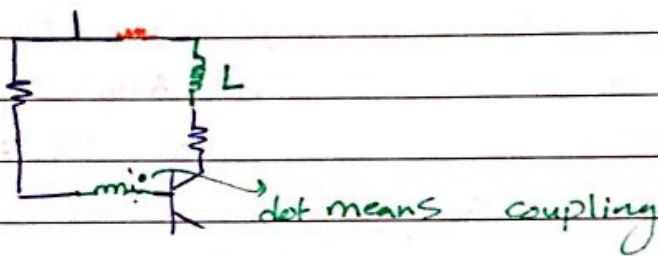 L
dot means coupling